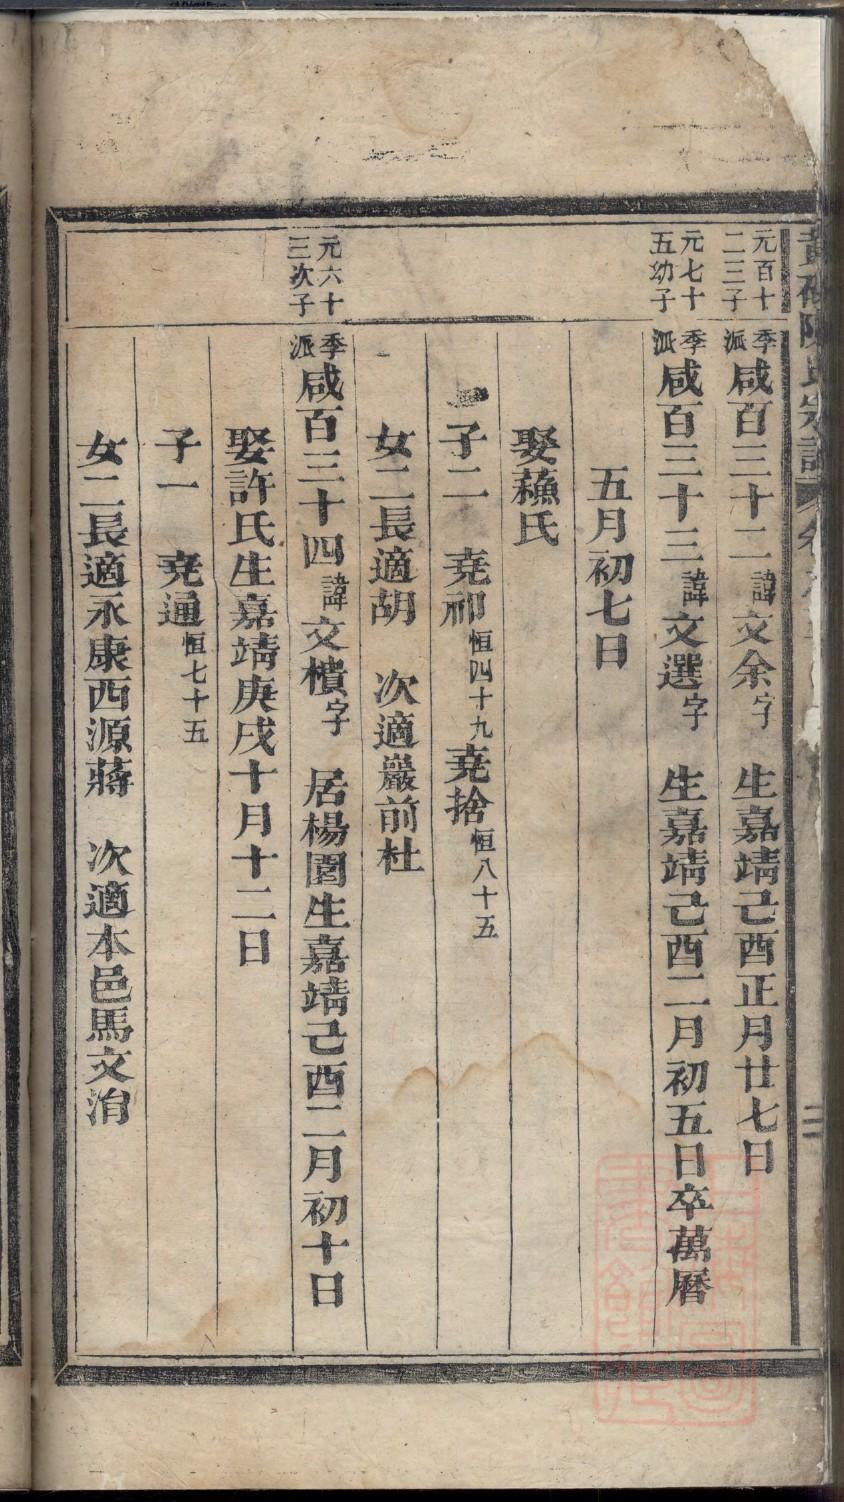 元百十
二三子
季派咸百三十二諱文余字　生嘉靖己酉正月廿七日
元七十
五幼子
季派咸百三十三諱文選字　生嘉靖己酉二月初五日卒萬曆
五月初七日
娶蘓氏
子二　堯祁恒四十九堯捨恒八十五
女二長適胡　次適巖前杜
元六十
三次子
季派咸百三十四諱文櫝字　居楊園生嘉靖己酉二月初十日
娶許氏生嘉靖庚戌十月十二日
子一　堯通恒七十五
女二長適永康西源蔣　次適本邑馬文淯